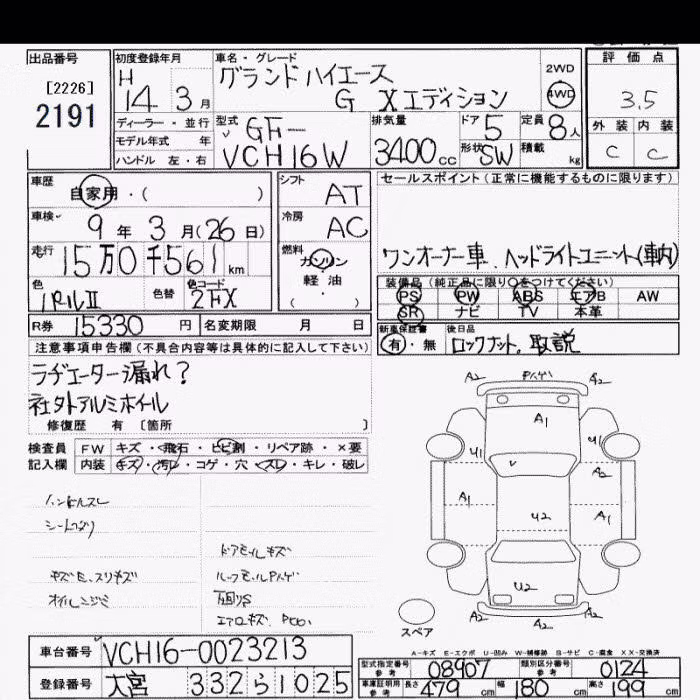 出品番号
[2226]
2191
初度登録年月
H
14年 3月
ディーラー・並行
モデル年式 年
ハンドル 左・右
車名・グレード
グランドハイエース
G Xエディション
2WD
4WD
評価点
3.5
外装 内装
C C
型式
GF-
VCH16W
排気量
3400cc
ドア 5
形状 SW
定員 8人
積載 kg
車歴
自家用・( )
車検
9年3月(26日)
走行
15万0千561km
色
パールII
色替
色コード
2FX
R券 15330円
名変期限 月 日
シフト
AT
冷房
AC
燃料
ガソリン
軽油
( ・ )
セールスポイント(正常に機能するものに限ります)
ワンオーナー車.ヘッドライトユニット(車内)
装備品(純正品に限り○をつけてください)
PS PW ABS エアB AW
SR ナビ TV 本革
新車保証書
有・無
後日品
ロックナット.取説
注意事項申告欄(不具合内容等は具体的に記入して下さい)
ラヂエーター漏れ?
社外アルミホイール
修復歴 有[箇所 ]
検査員
記入欄
FW キズ・飛石・ヒビ割・リペア跡・×要
内装 キズ・汚レ・コゲ・穴・スレ・キレ・破レ
ハンドルスレ
ドアモールキズ
A2 A2
A1
U1 U1
A2
A1 U2 A1
U2
A2 A2 A2
スペア
A-キズ E-エクボ U-凹み W-補修跡 S-サビ C-腐食 XX-交換済
車台番号 VCH16-0023213
登録番号 大宮 332ら1025
型式指定番号
参考
08907
類別区分番号
参考
0124
車庫証明用
参考
長さ 479cm 幅 180cm 高さ 199cm